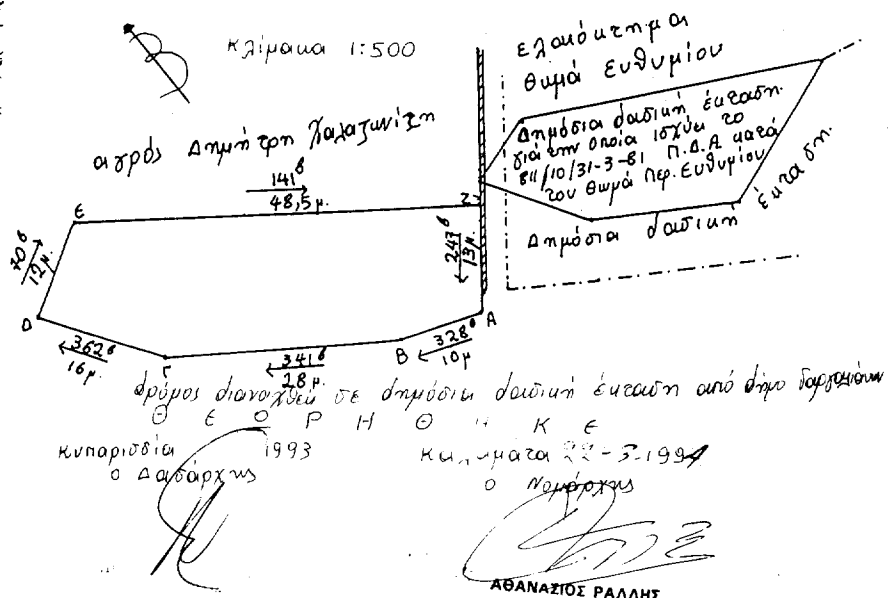 Κλίμακα 1:500
ελαιόκτημα
Θωμά Ευθυμίου
αγρός Δημήτρη
Δημόσια δασική έκταση
για την οποία ισχύει το
811/10/31-3-81 Π.Δ.Α κατά
του Θωμά Περ. Ευθυμίου
Δημόσια δασική έκταση.
141β
48,5μ.
Ε
Ζ
70β
12μ.
247β
13μ.
Δ
Α
362β
16μ.
Γ
341β
28μ.
Β
328β
10μ
δρόμος διανοιχθείς σε δημόσια δασική έκταση από δήμο
Θ Ε Ο Ρ Η Θ Η Κ Ε
Κυπαρισσία 1993
ο Δασάρχης
Καλαμάτα 22-3-1994
ο Νομάρχης
ΑΘΑΝΑΣΙΟΣ ΡΑΛΛΗΣ